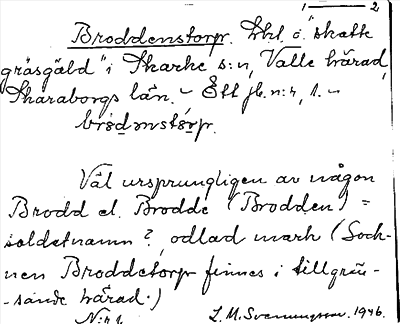 1 — 2
Broddenstorp. Lht o. "skatte
gräsgäld" i Skarke s:n, Valle härad,
Skaraborgs län. - Ett jb. n:r, 1. -
brödmstórp.
Väl ursprungligen av någon
Brodd el. Brodde (Brodden) =
soldatnamn?, odlad mark (Sock-
nen Broddetorp finnes i tillgrän-
-sande härad.)
N:r 1 L. M. Svenungsson. 1946.